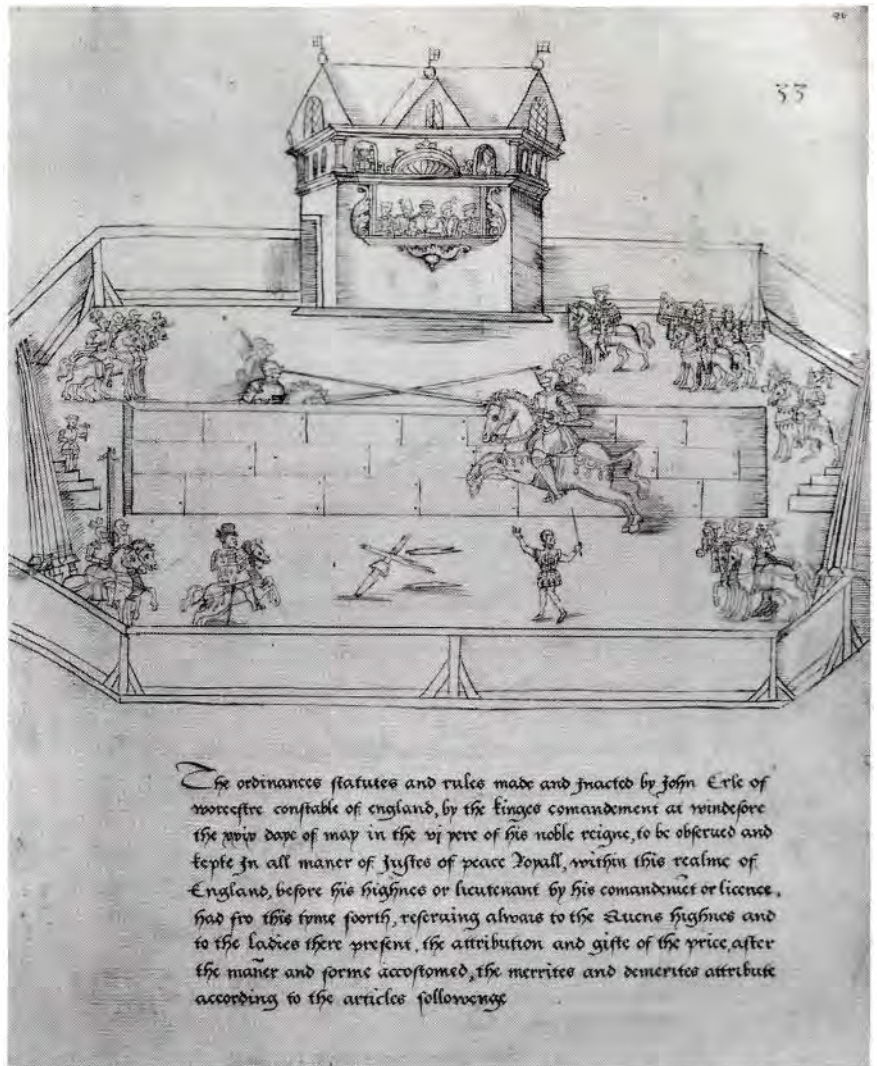 33
The ordinances statutes and rules made and Inacted by John Erle of
worcestre constable of england, by the kinges comandement at windesore
the xxix daye of may in the vj yere of his noble reigne, to be obserued and
kepte In all maner of Justes of peace Royall, within this realme of
England, before his highnes or lieutenant by his comandemēt or licence,
had fro this tyme foorth, reseruing alwais to the Quens highnes and
to the ladies there present, the attribution and gifte of the price, after
the mañer and forme accostomed, the merrites and demerites attribute
according to the articles followenge